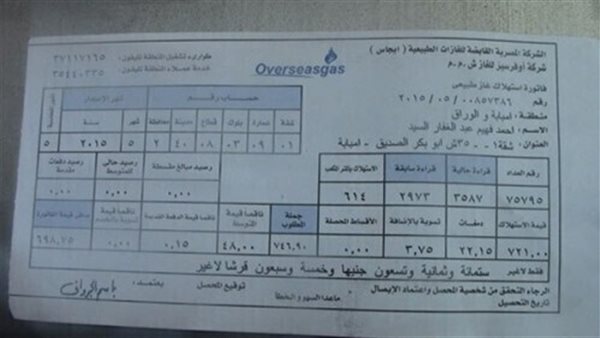 الشركة المصرية القابضة للغازات الطبيعية ( ايجاس )
شركة أوفرسيز للغاز ش.م.م
Overseasgas
طوارىء تشغيل المنطقة تليفون: ٣٧١١٧١٦٥
خدمة عملاء المنطقة تليفون: ٣٥٤٤٠٣٣٥
فاتورة استهلاك غاز طبيعى
رقم ٢٠١٥ / ٠٥ / ٠٠٨٥٧٣٨٦
منطقة: امبابة و الوراق
الاسم: احمد فهيم عبد الغفار السيد
العنوان: شقة١ ٣٥٠٠ش ابو بكر الصديق - امبابة
حساب رقم
شهر الاصدار
شقة عمارة بلوك قطاع مدينة محافظة
شهر سنة
٠١ ٠٩ ٠٣ ٠٨ ٤٠ ٢
٥ ٢٠١٥ ٥
رقم العداد قراءة حالية قراءة سابقة الاستهلاك بالمتر المكعب
٧٥٧٩٥ ٣٥٨٧ ٢٩٧٣ ٦١٤
رصيد مبالغ مقسطة رصيد حالى للمتوسط رصيد دفعات مقدمة
٠,٠٠ ٠,٠٠ ٠,٠٠
قيمة الاستهلاك دمغات تسوية بالإضافة الأقساط المحصلة
٧٢١,٠٠ ٢٢,١٥ ٣,٧٥ ٠,٠٠
جملة المطلوب ناقصا قيمة المتوسط ناقصا قيمة الدفعة المقدمة ناقصا قيمة تسوية بالخصم صافى قيمة الفاتورة
٧٤٦,٩٠ ٤٨,٠٠ ٠,١٥ ٠,٠٠ ٦٩٨,٧٥
فقط لاغير ستمائة وثمانية وتسعون جنيها وخمسة وسبعون قرشا لاغير
الرجاء التحقق من شخصية المحصل واعتماد الإيصال
توقيع المحصل
يعتمد،
تاريخ التحصيل
ماعدا السهو و الخطأ